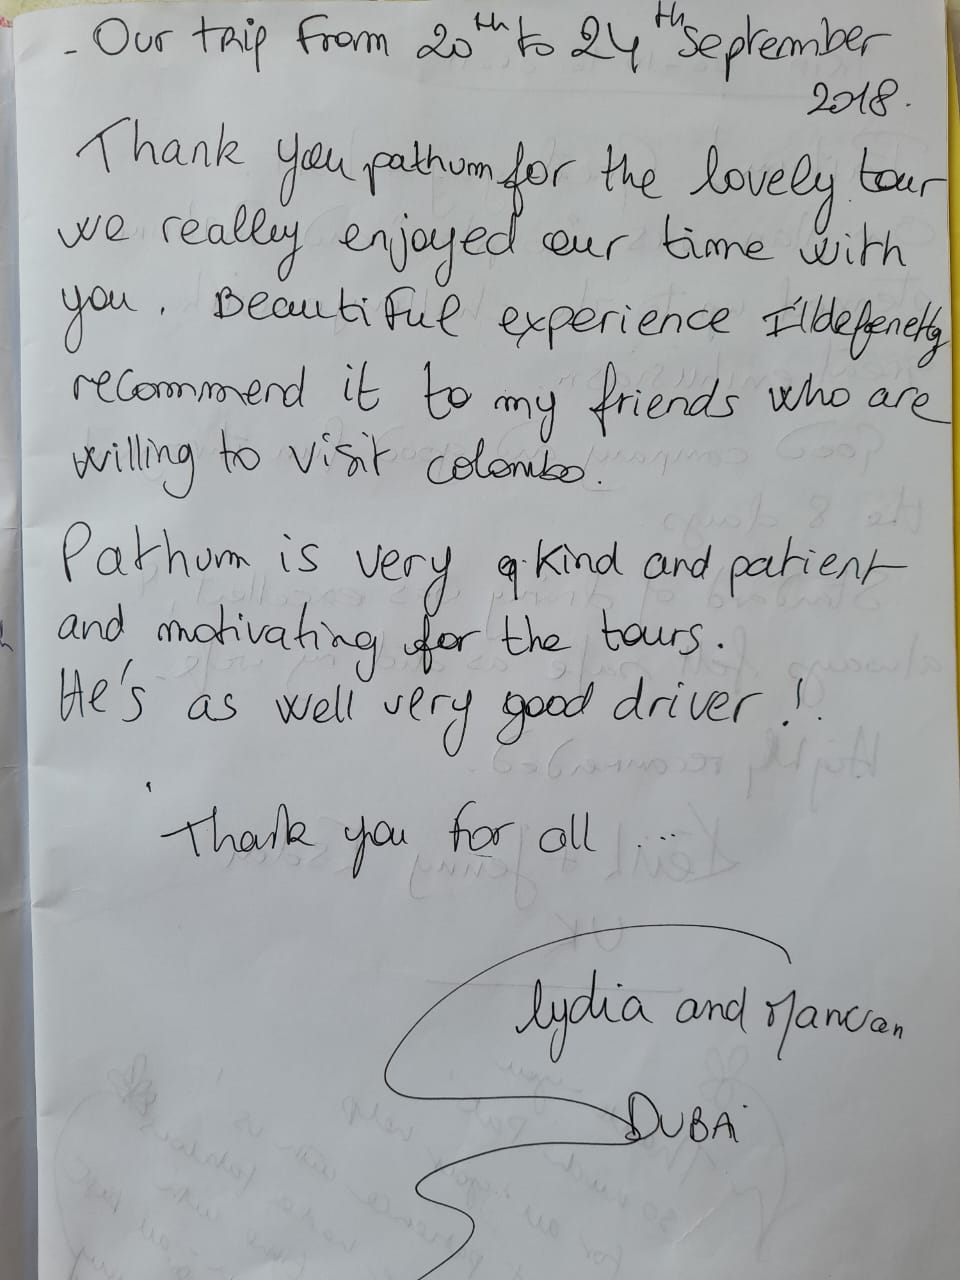 - Our trip from 20th to 24th september
2018.
Thank you pathum for the lovely tour
we really enjoyed our time with
you. Beautiful experience I'll defenetly
recommend it to my friends who are
willing to visit colombo.
Pathum is very kind and patient
and motivating for the tours.
He's as well very good driver!
Thank you for all ...
lydia and
DUBAi